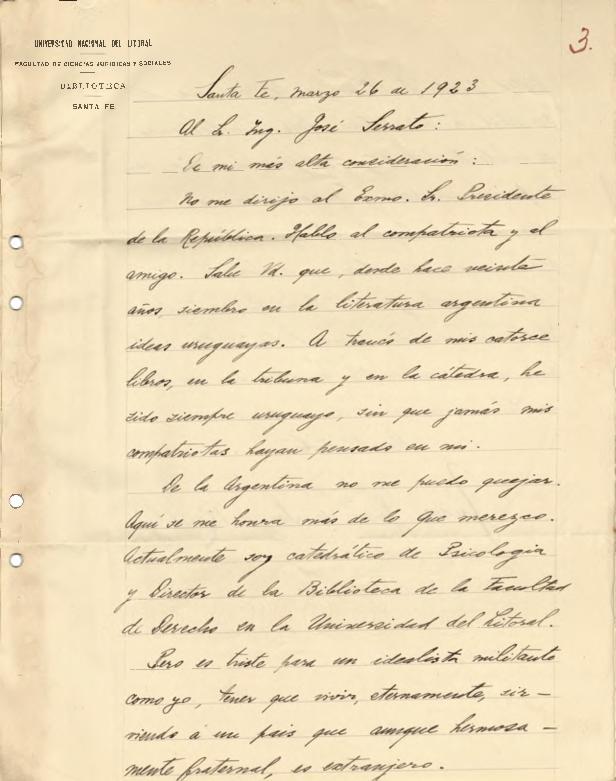 3.
UNIVERSIDAD NACIONAL DEL LITORAL
FACULTAD DE CIENCIAS JURIDICAS Y SOCIALES
BIBLIOTECA
SANTA FE
Santa Fe, marzo 26 de 1923
Al Sr. Ing. José Serrato:
De mi más alta consideración:
No me dirijo al Exmo. Sr. Presidente
de la República. Hablo al compatriota y al
amigo. Sabe Vd. que, desde hace veinte
años, siembro en la literatura argentina
ideas uruguayas. A través de mis catorce
libros, en la tribuna y en la cátedra, he
sido siempre uruguayo, sin que jamás mis
compatriotas hayan pensado en mi.
De la Argentina no me puedo quejar.
Aquí se me honra más de lo que merezco.
Actualmente soy catedrático de Psicologia
y Director de la Biblioteca de la Facultad
de Derecho en la Universidad del Litoral.
Pero es triste para un idealista militante
como yo, tener que vivir, eternamente, sir-
viendo á un pais que aunque hermosa-
mente fraternal, es extranjero.